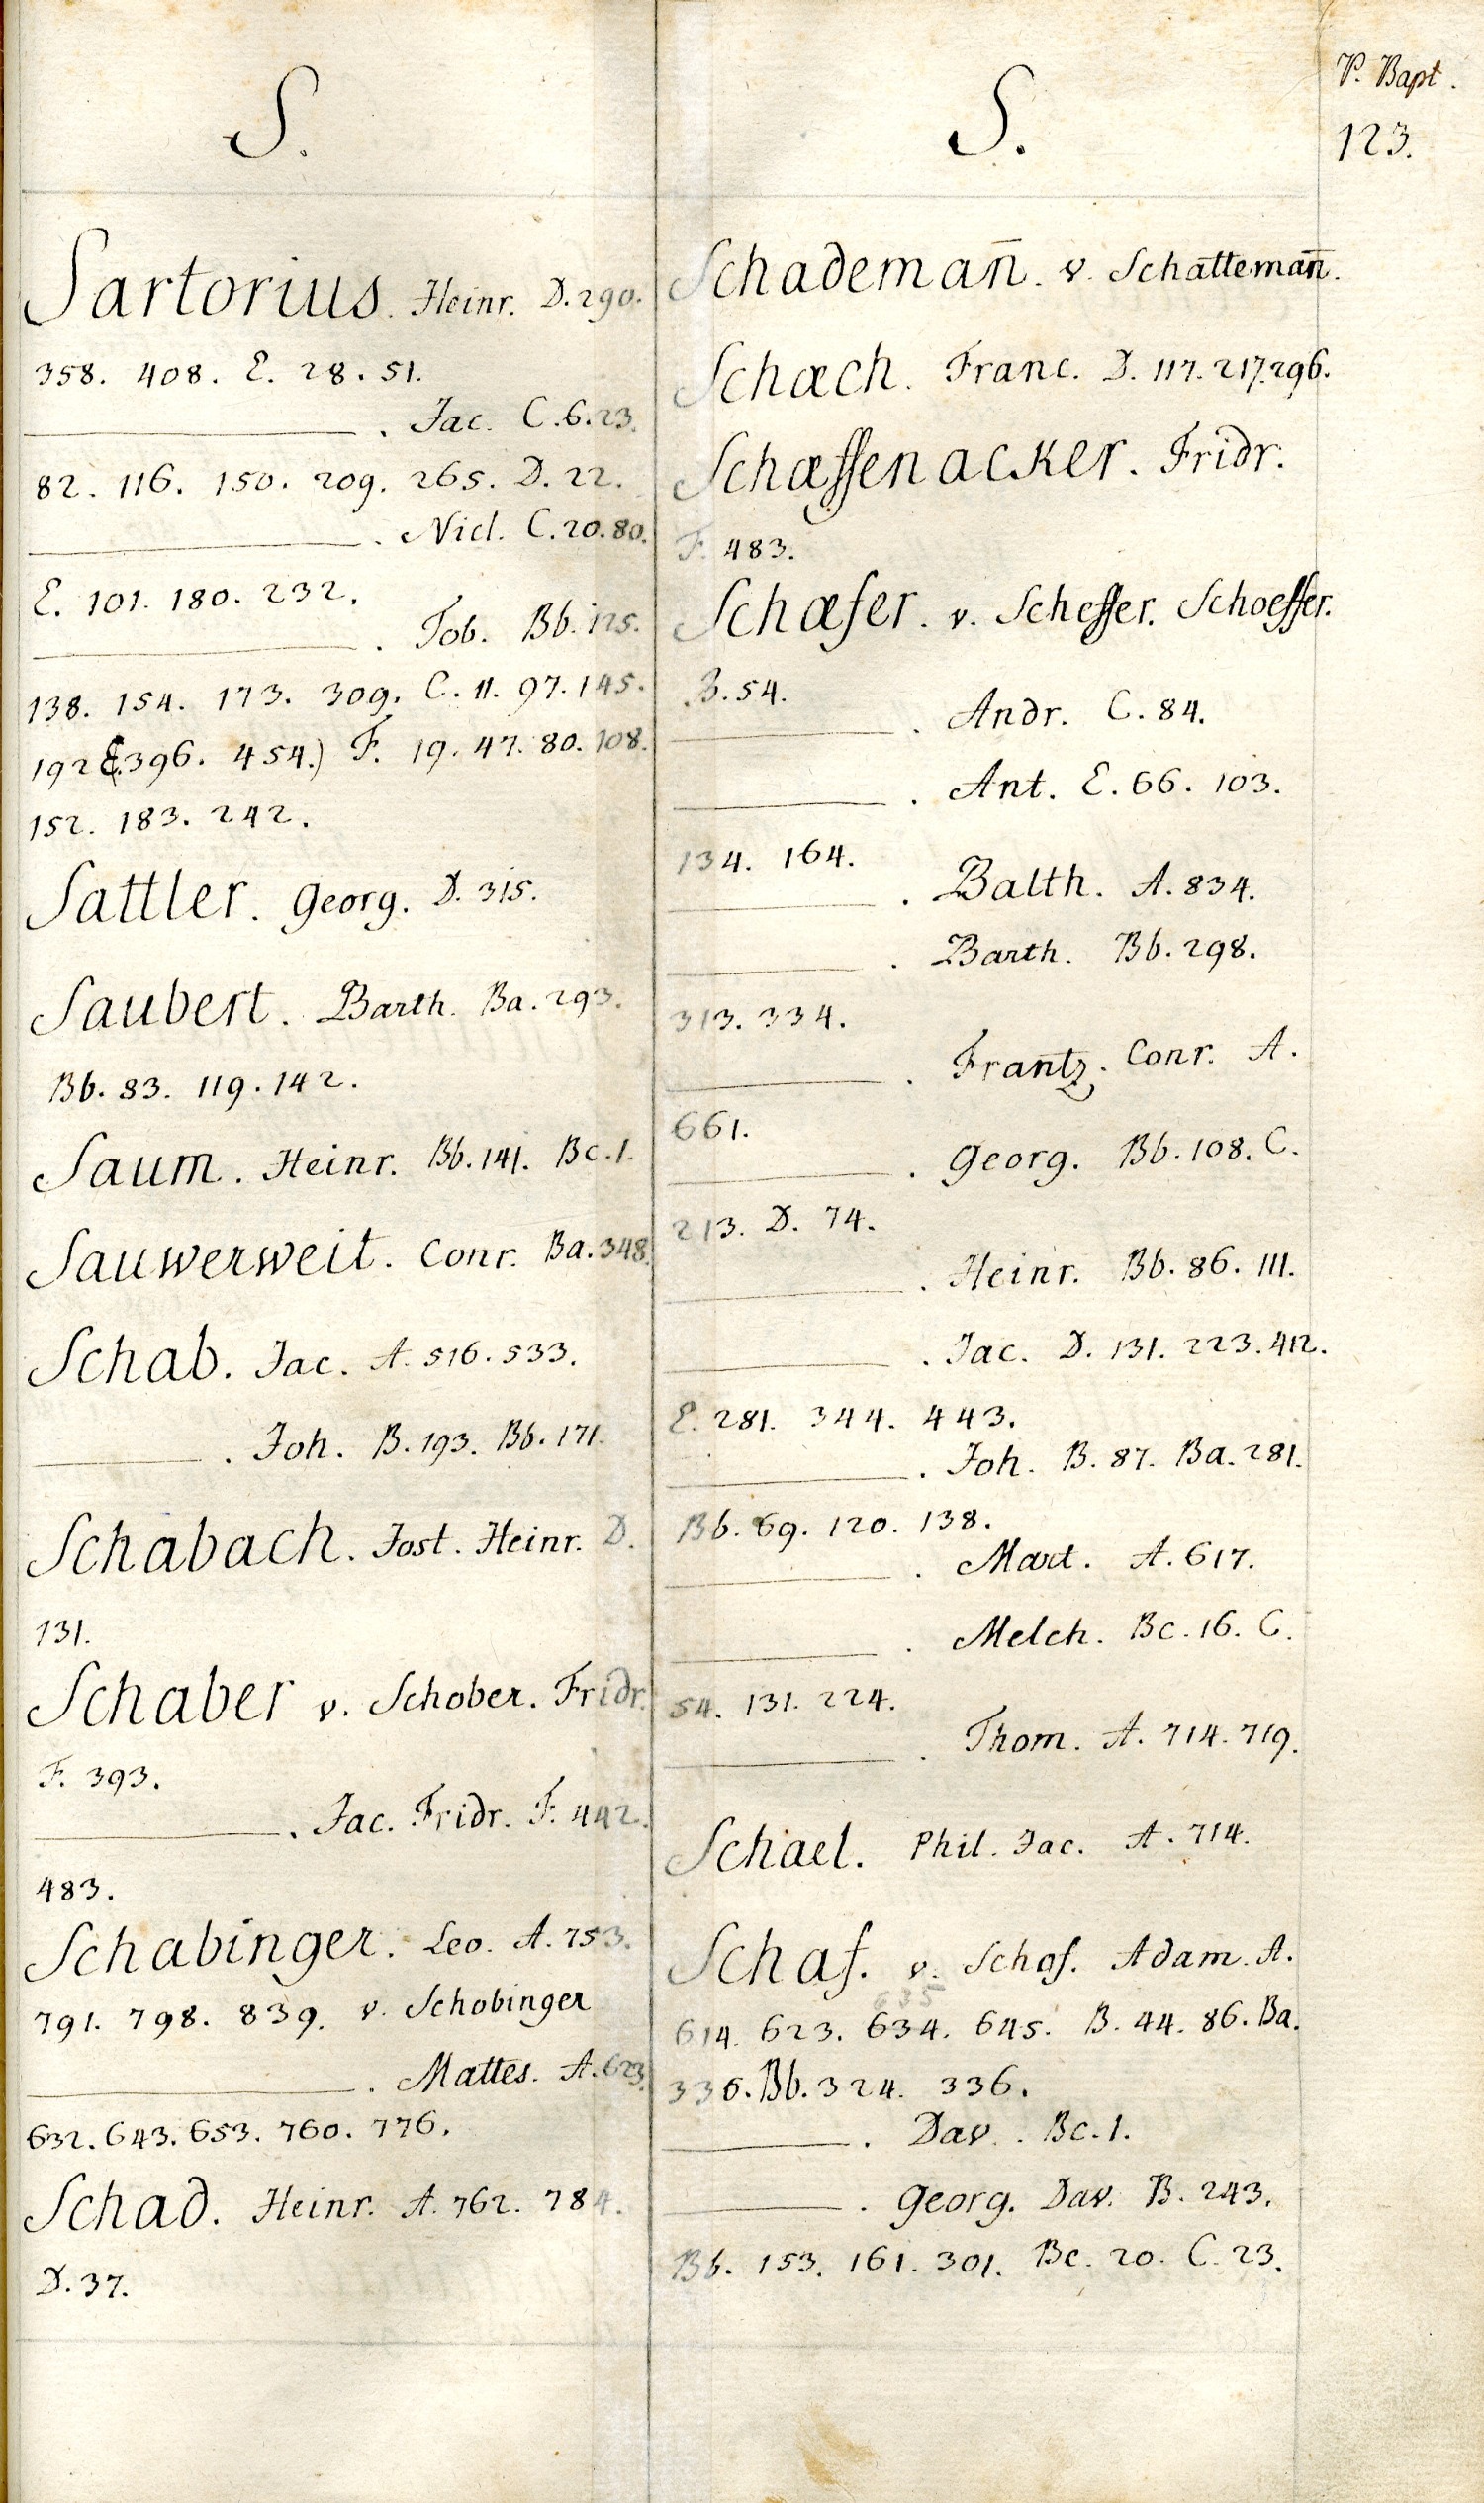 S.
Sartorius. Heinr. D. 290.
358. 408. E. 28. 51.
. Jac. C. 6. 23.
82. 116. 150. 209. 265. D. 22.
. Nicl. C. 20. 80.
E. 101. 180. 232.
. Tob. Bb. 125.
138. 154. 173. 309. C. 11. 97. 145.
192 E. 396. 454.) F. 19. 47. 80. 108.
152. 183. 242.
Sattler. Georg. D. 315.
Saubert. Barth. Ba. 293.
Bb. 83. 119. 142.
Saum. Heinr. Bb. 141. Bc. 1.
Sauwerweit. Conr. Ba. 348.
Schab. Jac. A. 516. 533.
. Joh. B. 193. Bb. 171.
Schabach. Jost. Heinr. D.
131.
Schaber v. Schober. Fridr.
F. 393.
. Jac. Fridr. F. 442.
483.
Schabinger. Leo. A. 753.
791. 798. 839. v. Schobinger
. Mattes. A. 623.
632. 643. 653. 760. 776.
Schad. Heinr. A. 762. 784.
D. 37.
S.
Schademan̄. v. Schatteman̄.
Schæch. Franc. D. 117. 217. 296.
Schæffenacker. Fridr.
F. 483.
Schæfer. v. Scheffer. Schoeffer.
B. 54.
. Andr. C. 84.
. Ant. E. 66. 103.
134. 164.
. Balth. A. 834.
. Barth. Bb. 298.
313. 334.
. Frantz. Conr. A.
661.
. Georg. Bb. 108. C.
213. D. 74.
. Heinr. Bb. 86. 111.
. Jac. D. 131. 223. 412.
E. 281. 344. 443.
. Joh. B. 87. Ba. 281.
Bb. 69. 120. 138.
. Mart. A. 617.
. Melch. Bc. 16. C.
54. 131. 224.
. Thom. A. 714. 719.
Schael. Phil. Jac. A. 714.
Schaf. v. Schof. Adam. A.
635
614. 623. 634. 645. B. 44. 86. Ba.
336. Bb. 324. 336.
. Dav. Bc. 1.
. Georg. Dav. B. 243.
Bb. 153. 161. 301. Bc. 20. C. 23.
P. Bapt.
123.